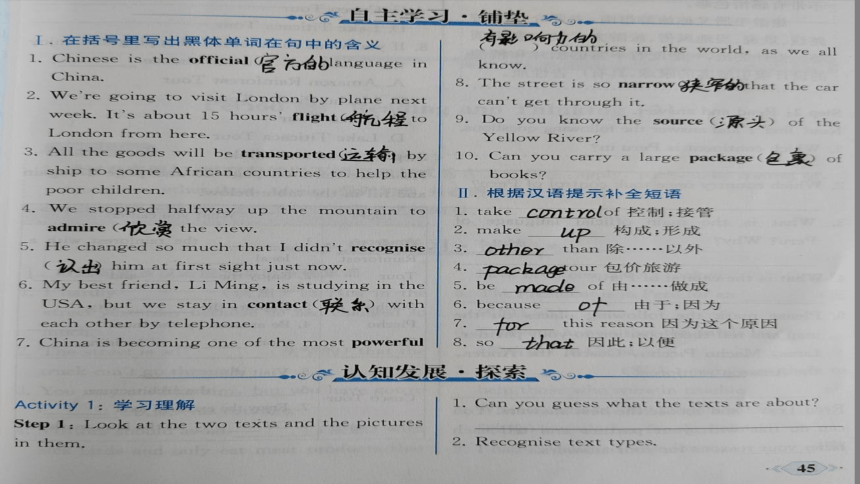 自主学习·铺垫
Ⅰ.在括号里写出黑体单词在句中的含义
1. Chinese is the official (官方的) language in
China.
2. We're going to visit London by plane next
week. It's about 15 hours' flight (航程) to
London from here.
3. All the goods will be transported (运输) by
ship to some African countries to help the
poor children.
4. We stopped halfway up the mountain to
admire (欣赏) the view.
5. He changed so much that I didn't recognise
(认出) him at first sight just now.
6. My best friend, Li Ming, is studying in the
USA, but we stay in contact (联系) with
each other by telephone.
7. China is becoming one of the most powerful
有影响力的
( ) countries in the world, as we all
know.
8. The street is so narrow (狭窄的) that the car
can't get through it.
9. Do you know the source (源头) of the
Yellow River?
10. Can you carry a large package (包裹) of
books?
Ⅱ.根据汉语提示补全短语
1. take control of 控制;接管
2. make up 构成;形成
3. other than 除……以外
4. package tour 包价旅游
5. be made of 由……做成
6. because of 由于;因为
7. for this reason 因为这个原因
8. so that 因此;以便
认知发展·探索
Activity 1:学习理解
Step 1: Look at the two texts and the pictures
in them.
1. Can you guess what the texts are about?
2. Recognise text types.
45